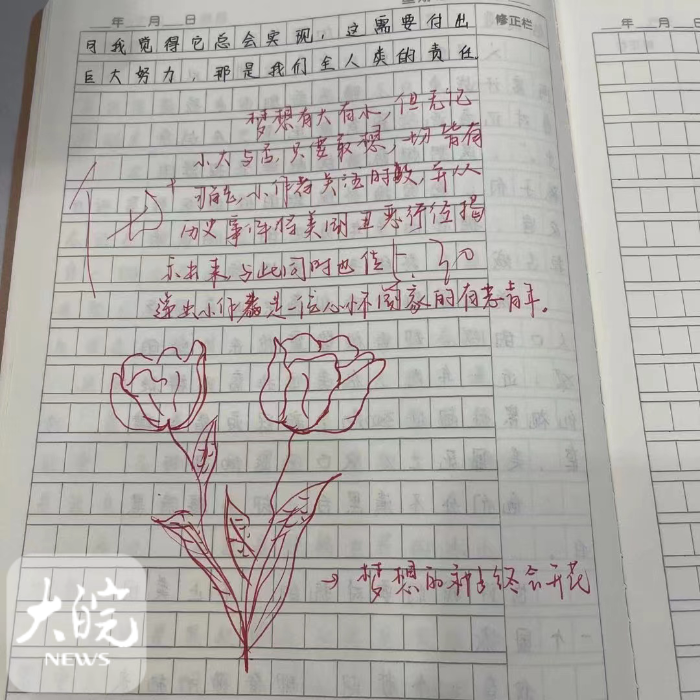 年 月 日
修正栏
年 月 日
但我觉得它总会实现 这需要付出
巨大努力，那是我们全人类的责任
梦想有大有小，但无论
小大与否，只要敢想，一切皆有
可能，小作者关注时政，并从
历史事件将美国丑恶行径揭
示出来，与此同时也值
小作者是一位心怀国家的有志青年。
→ 梦想的种子终会开花
大皖
NEWS